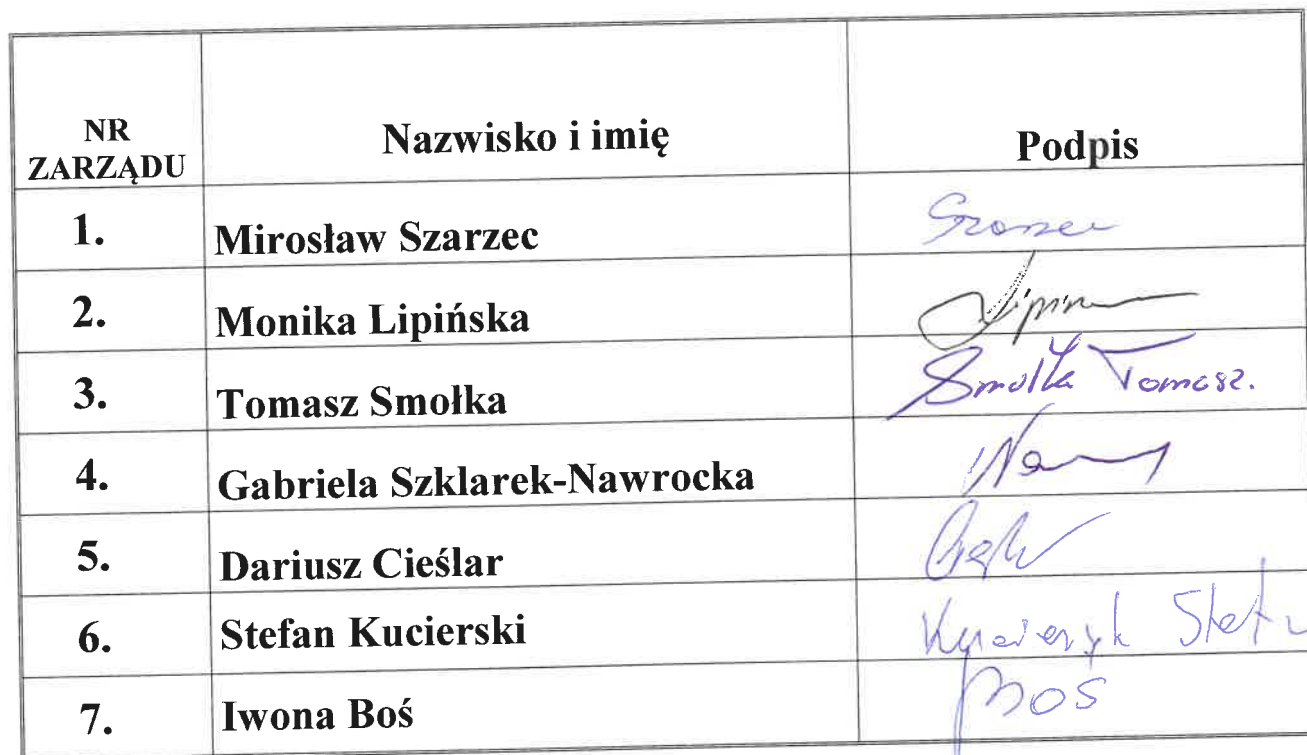 NR ZARZĄDU Nazwisko i imię Podpis
1. Mirosław Szarzec
2. Monika Lipińska
3. Tomasz Smołka Smołka Tomasz.
4. Gabriela Szklarek-Nawrocka
5. Dariusz Cieślar
6. Stefan Kucierski
7. Iwona Boś Boś